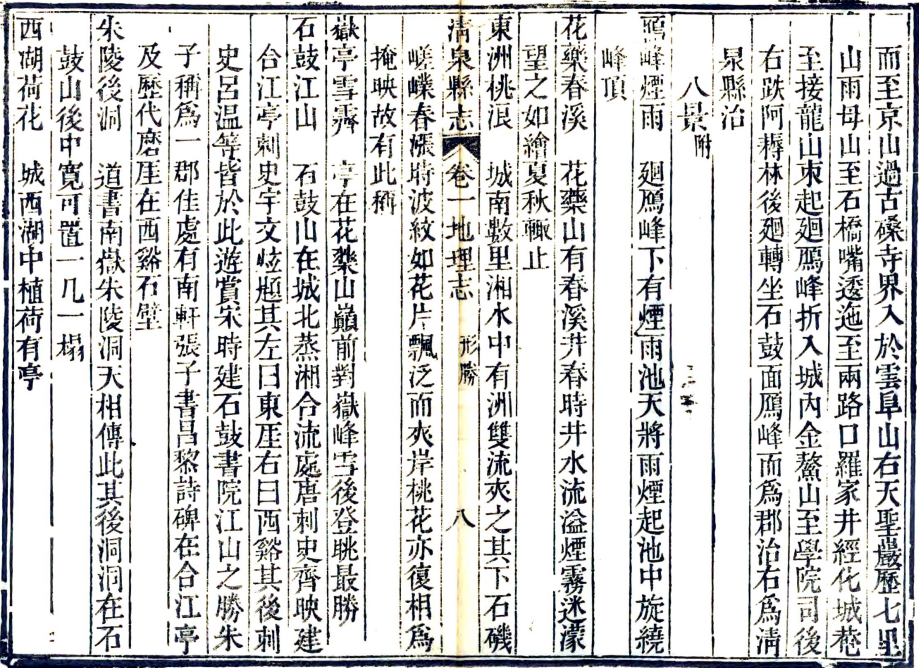 而至京山過古磉寺界入於雲阜山右天聖巖歷七里
山雨母山至石橋嘴透迤至兩路口羅家井經化城菴
至接龍山朿起迴鴈峰折入城內金鰲山至學院司後
右跌阿耨林後迴轉坐石鼓面鴈峰而爲郡治右爲淸
泉縣治
八景附
鴈峰煙雨 迴鴈峰下有煙雨池天將雨煙起池中旋繞
峰頂
花藥春溪 花藥山有春溪井春時井水流溢煙霧迷濛
望之如繪夏秋輒止
東洲桃浪 城南數里湘水中有洲雙流夾之其下石磯
淸泉縣志 卷一地理志 形勝 八
嵯嶫春漲時波紋如花片飄泛而夾岸桃花亦復相爲
掩映故有此稱
嶽亭雪霽 亭在花藥山巔前對嶽峰雪後登眺最勝
石鼓江山 石鼓山在城北蒸湘合流處唐刺史齊映建
合江亭刺史宇文炫題其左曰東厓右曰西谿其後刺
史呂温等皆於此遊賞宋時建石鼓書院江山之勝朱
子稱爲一郡佳處有南軒張子書昌黎詩碑在合江亭
及歷代磨厓在西谿石壁
朱陵後洞 道書南嶽朱陵洞天相傳此其後洞洞在石
鼓山後中寬可置一几一榻
西湖荷花 城西湖中植荷有亭